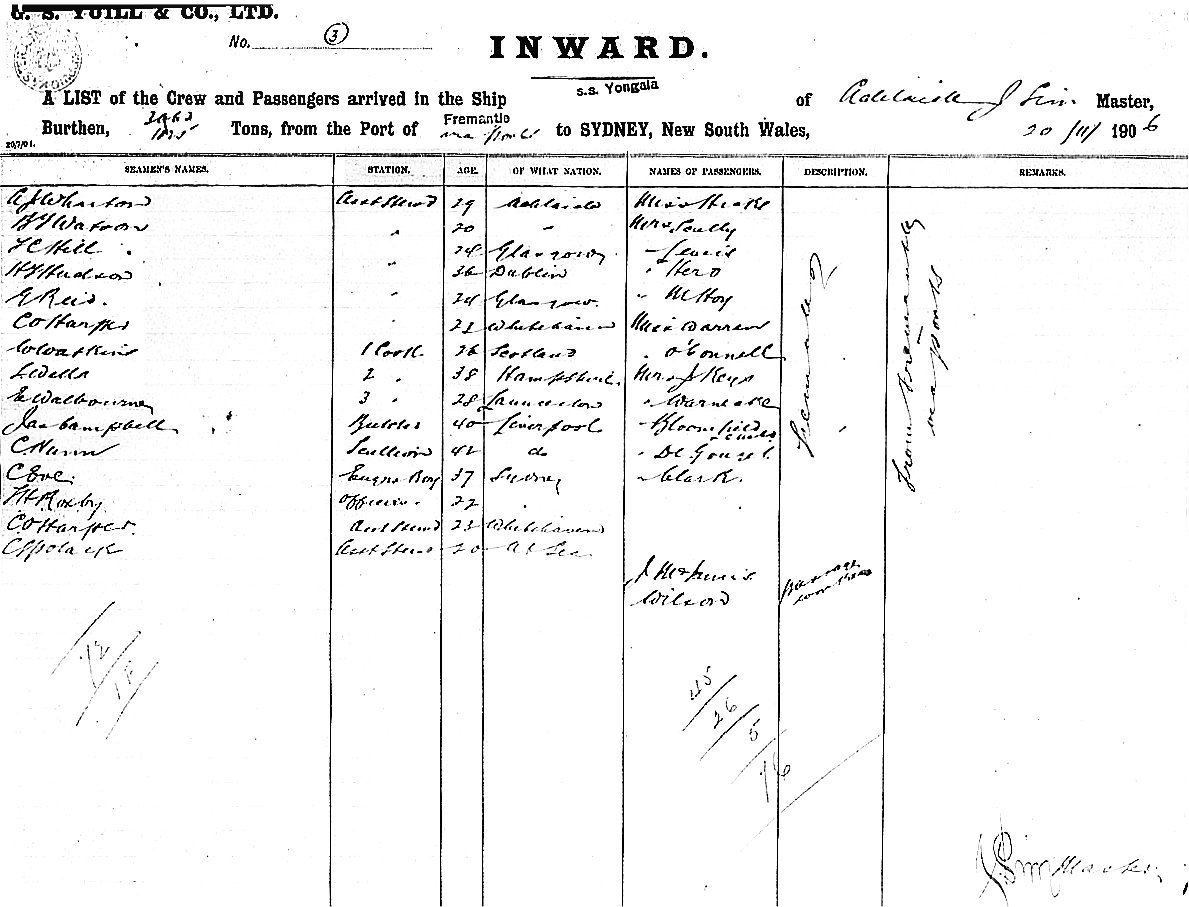 G. S. YUILL & CO., LTD.
No. 3
INWARD.
s.s. Yongala
A LIST of the Crew and Passengers arrived in the Ship of Adelaide J Sim Master,
Burthen, 1825 Tons, from the Port of Fremantle via ports to SYDNEY, New South Wales, 20/11/1906
20,7/01.
SEAMEN'S NAMES. STATION. AGE. OF WHAT NATION. NAMES OF PASSENGERS. DESCRIPTION. REMARKS.
A J Wharton Asst Stewd 29 Adelaide Miss
H J Watson " 20 " Mrs Scully
F C Hill " 24 Glasgow " Lewis
H J Hudson " 36 Dublin " Hero
G Reid. " 24 Glasgow. " McHoy
C O Harper " 21 Whitehaven Miss Warren
W Watkins 1 Cook 26 Scotland " O'Connell
S Wells 2 " 38 Hampshire. Mrs J Keys
E Walbourne 3 " 28 Launceston " Warnecke
Jas Campbell Butcher 40 Liverpool " Bloomfield
C Nunn Scullion 42 do " De Gouget
C Eve. 37 Sydney " Clark.
H Roxby Officer 22 "
C O Harper. Asst Stewd 21 Whitehaven
C Polack Asst Stewd 20 At Sea
J McInnis
Wilson
From Fremantle
via ports
12/18
45/26/5/76
J Sim Master